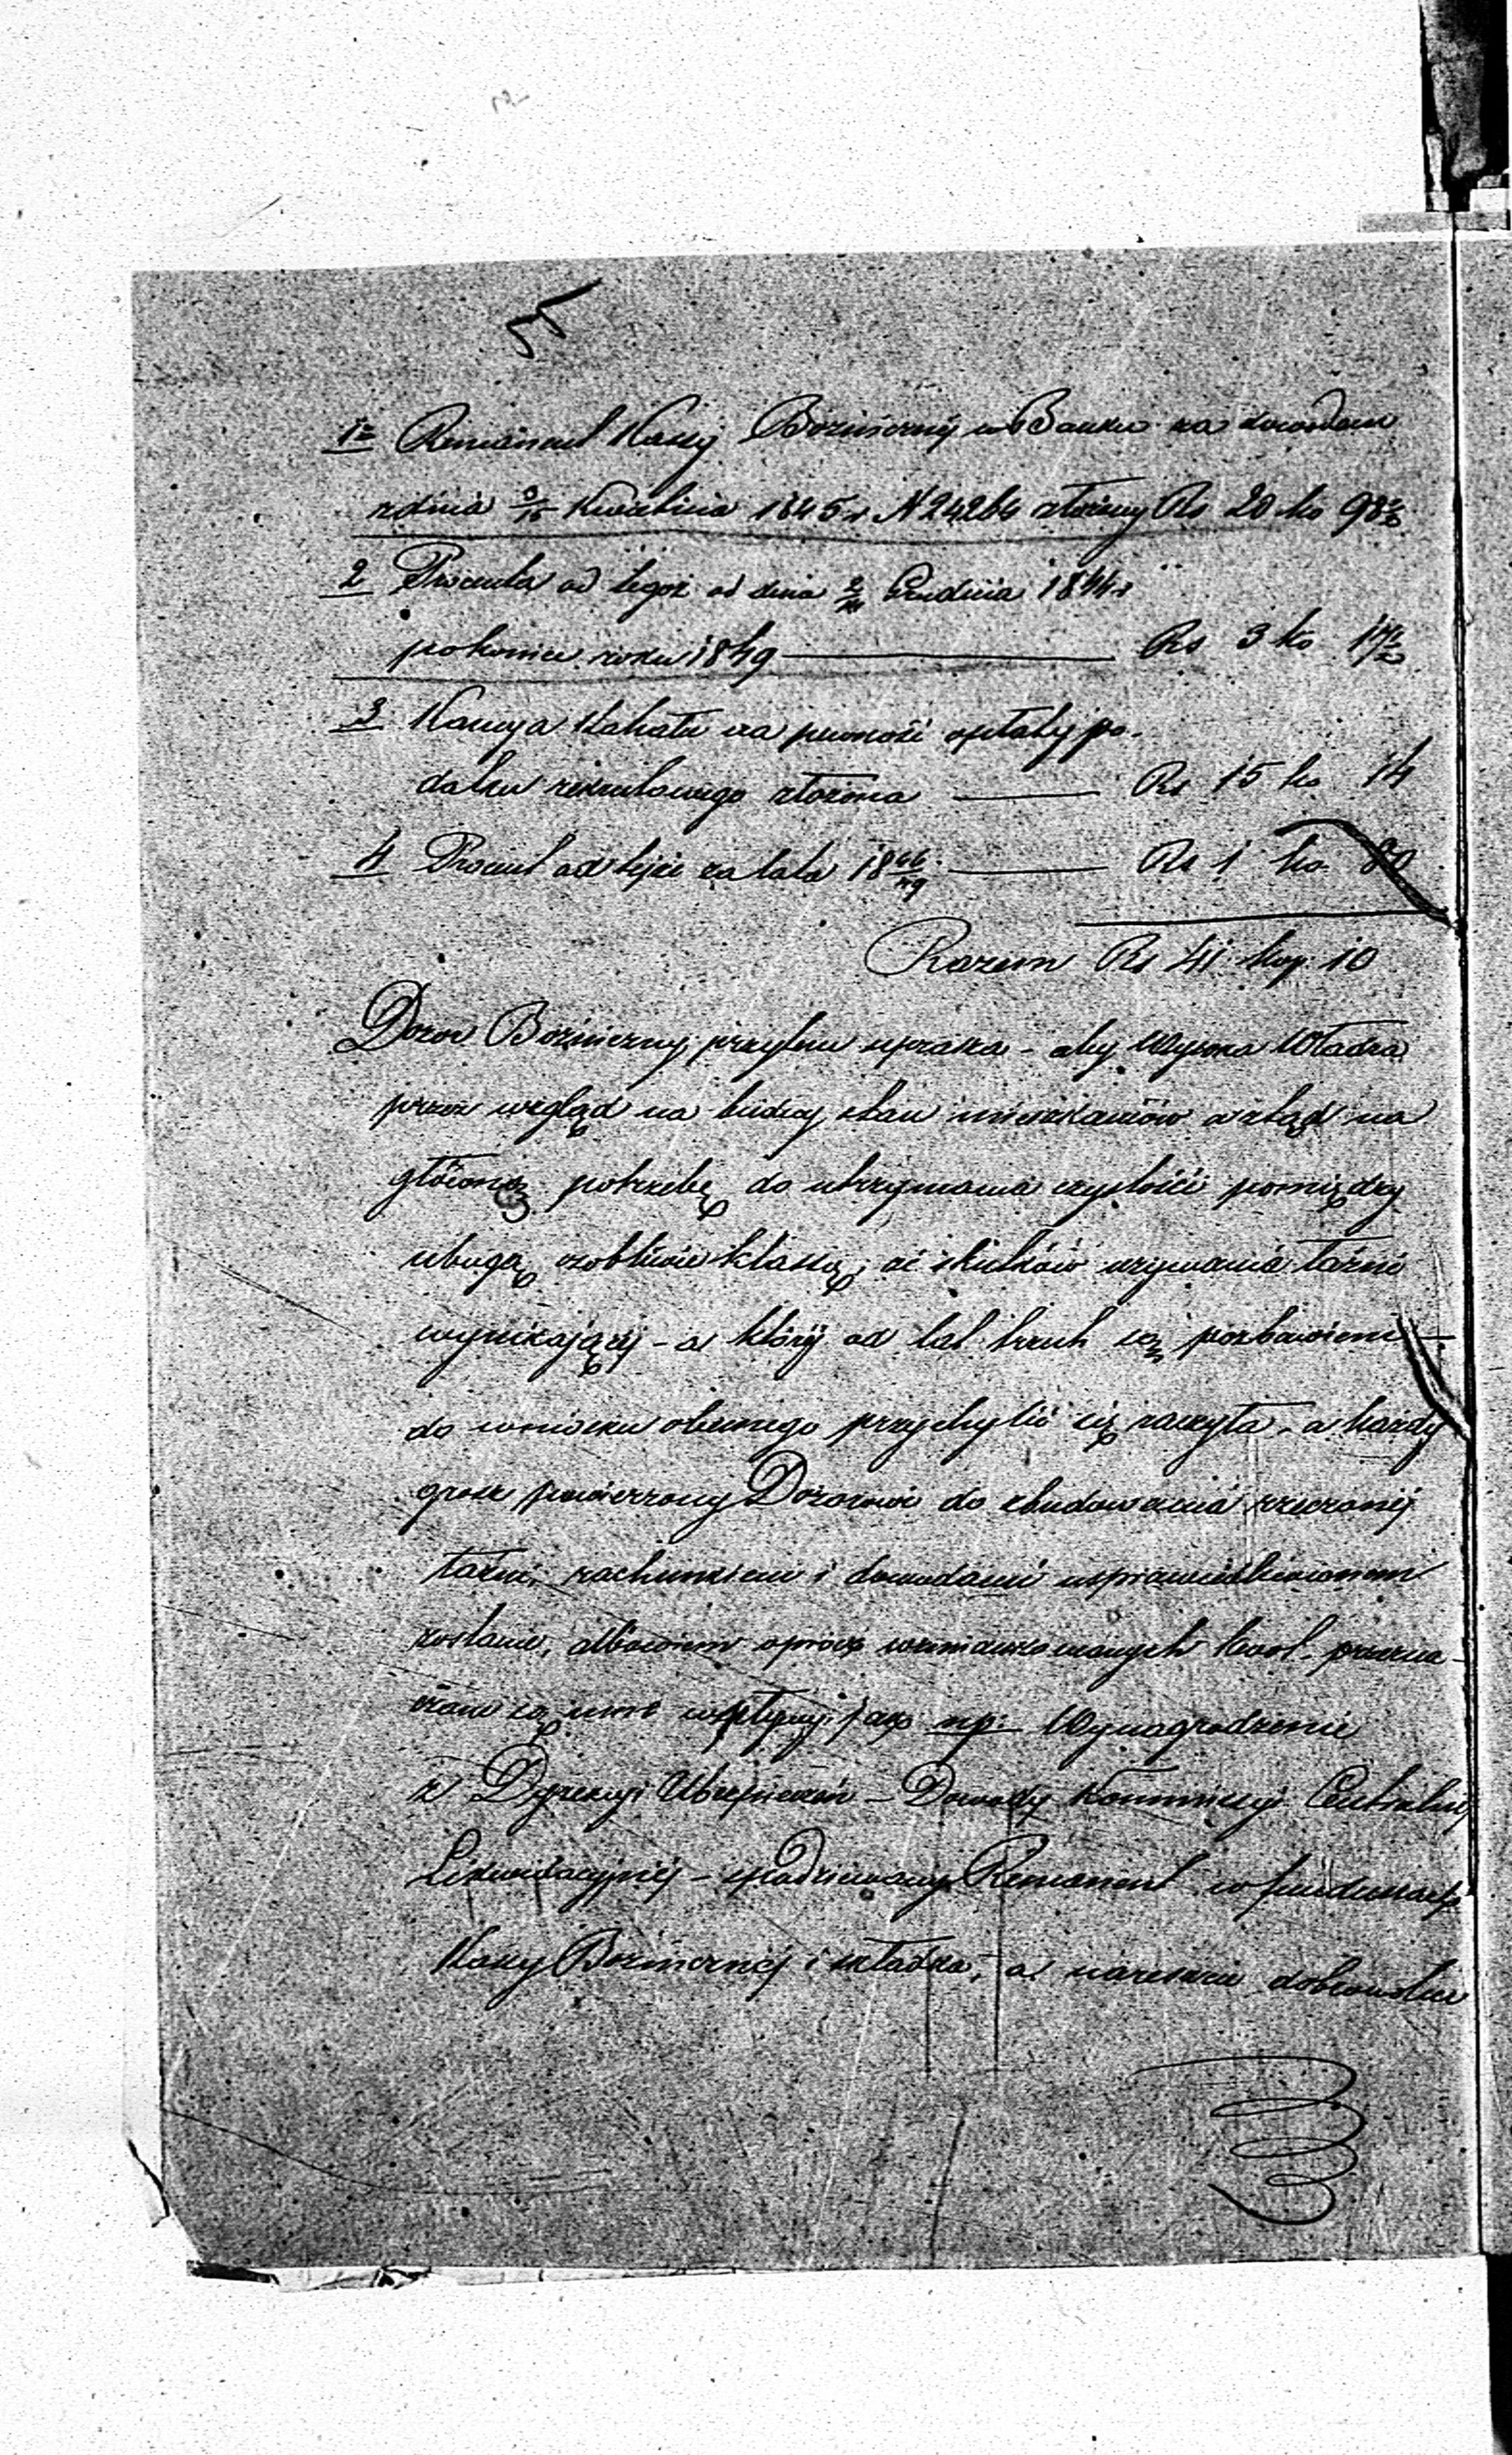 1o Remanent Kassy Bożniczny w Banku za dowodem
z dnia 3/15 Kwietnia 1845 r N 24264 złożony Rs 20 ko 98½
2 Procenta od tegoż od dnia 2/14 Grudnia 1844 r
po koniec roku 1849 — Rs 3 ko 17½
3 Kaucya Kahału za pewność opłaty po-
datku rekrutowego złożona — Rs 15 ko 14
4 Procent od tejże za lata 1846/49 — Rs 1 ko 80
Razem Rs 41 kop. 10
Dozor Bożniczny, przytem uprasza - aby Wysoka Władza
przez wzgląd na biedny stan mieszkańców a ztąd na
główną potrzebę do utrzymania czystości pomiędzy
ubogą osobliwie klassą, ze skutków używania łaźni
wynikającéj - a któréj od lat trzech są pozbawieni -
do wniosku obecnego przychylić się raczyła, a każdy
grosz powierzony Dozorowi do zbudowania rzeczonéj
łaźni, rachunkiem i dowodami usprawiedliwionem
zostanie, albowiem oprócz wzmiankowanych kwot. przezna-
czone są inne wpływy, jak np: Wynagrodzenie
z Dyrekcyi Ubezpieczeń - Dowody Kommissyi Centralnéj
Likwidacyjnéj - spodziewany Remanent w funduszach
Kassy Bożnicznéj i składka, a nareszcie dobrowolne